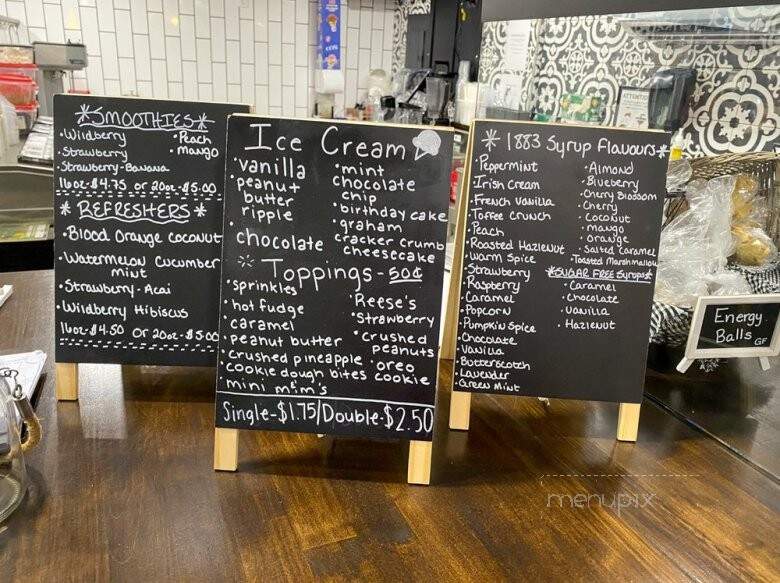 *SMOOTHIES*
• Wildberry
• Strawberry
• Strawberry-Banana
• Peach
• mango
16oz-$4.75 or 20oz-$5.00
* REFRESHERS *
• Blood Orange Coconut
• Watermelon Cucumber
mint
• Strawberry-Acai
• Wildberry Hibiscus
16oz-$4.50 or 20oz-$5.00
Ice Cream
• vanilla
• peanut
butter
ripple
• chocolate
• mint
chocolate
chip
• birthday cake
• graham
cracker crumb
cheesecake
Toppings-50¢
• sprinkles
• hot fudge
• caramel
• peanut butter
• crushed pineapple
• cookie dough bites
• mini m&m's
• Reese's
• Strawberry
• crushed
peanuts
• oreo
cookie
Single-$1.75/Double-$2.50
* 1883 Syrup Flavours*
• Peppermint
• Irish Cream
• French Vanilla
• Toffee Crunch
• Peach
• Roasted Hazlenut
• Warm Spice
• Strawberry
• Raspberry
• Caramel
• Popcorn
• Pumpkin Spice
• Chocolate
• Vanilla
• Butterscotch
• Lavender
• Green Mint
• Almond
• Blueberry
• Cherry Blossom
• Cherry
• Coconut
• mango
• Orange
• Salted Caramel
• Toasted Marshmallow
*SUGAR FREE Syrups*
• Caramel
• Chocolate
• Vanilla
• Hazlenut
Energy
Balls GF
menupix